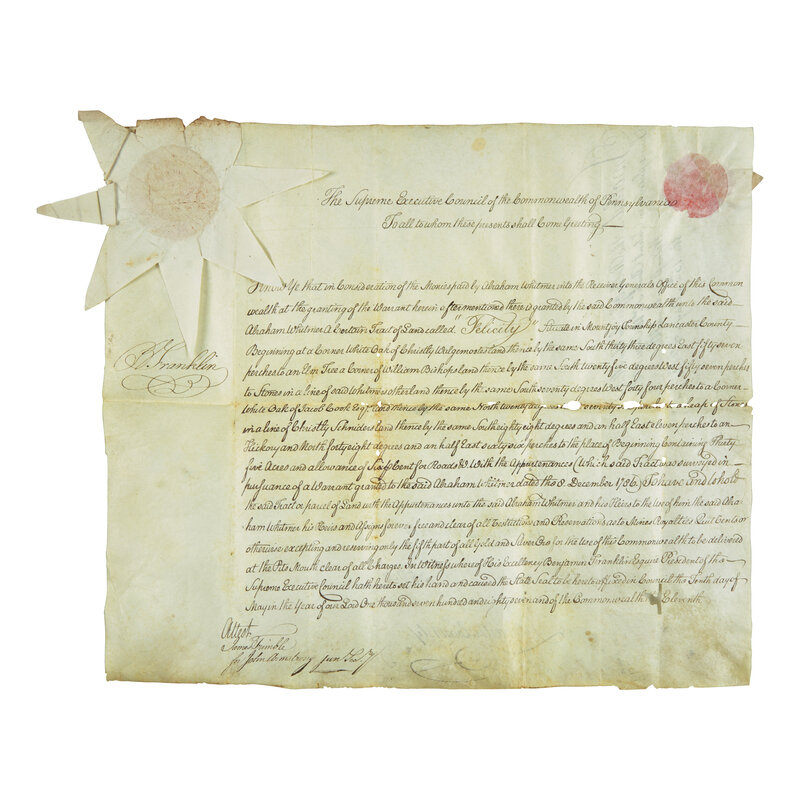 The Supreme Executive Council of the Commonwealth of Pennsylvania
To all to whom these presents shall Come Greeting
Know Ye that in Consideration of the Monies paid by Abraham Whitmer into the Receiver Generals Office of this Common
wealth at the granting of the Warrant herein after mentioned there is granted by the said Commonwealth unto the said
Abraham Whitmer A Certain Tract of Land called "Felicity" Situate in Mountjoy Township Lancaster County
Beginning at a Corner White Oak of Christly land thence by the same South thirty three degrees East fifty seven
B Franklin
perches to an Elm Tree a Corner of William Bishops Land thence by the same South twenty five degrees West fifty seven perches
to Stones in a line of said Whitmers other land thence by the same South seventy degrees West forty four perches to a Corner
White Oak of Jacob Cook Esqr. land thence by the same North twenty West seventy a heap of Stones
in a line of Christly Schniders land thence by the same South eighty eight degrees and an half East eleven perches to an
Hickory and North forty eight degrees and an half East sixty six perches to the place of Beginning Containing Thirty
five Acres and allowance of Six P Cent for Roads &c. With the Appurtenances (Which said Tract was surveyed in
pursuance of a Warrant granted to the said Abraham Whitmer dated the December 1786) To have and to hold
the said Tract or parcel of Land with the Appurtenances unto the said Abraham Whitmer and his Heirs to the Use of him the said Abra
ham Whitmer his Heirs and Assigns forever free and clear of all Restrictions and Reservations as to Mines Royalties Quit Rents or
otherwise excepting and reserving only the fifth part of all Gold and Silver Ore for the Use of this Commonwealth to be delivered
at the Pits Mouth clear of all Charges. In Witness whereof His Excellency Benjamin Franklin Esquire President of the
Supreme Executive Council hath hereto set his hand and caused the State Seal to be hereto affixed in Council this Tenth day of
May in the Year of our Lord One thousand seven hundred and eighty seven and of the Commonwealth the Eleventh
Attest
James Trimble
for John Armstrong junr. Secy